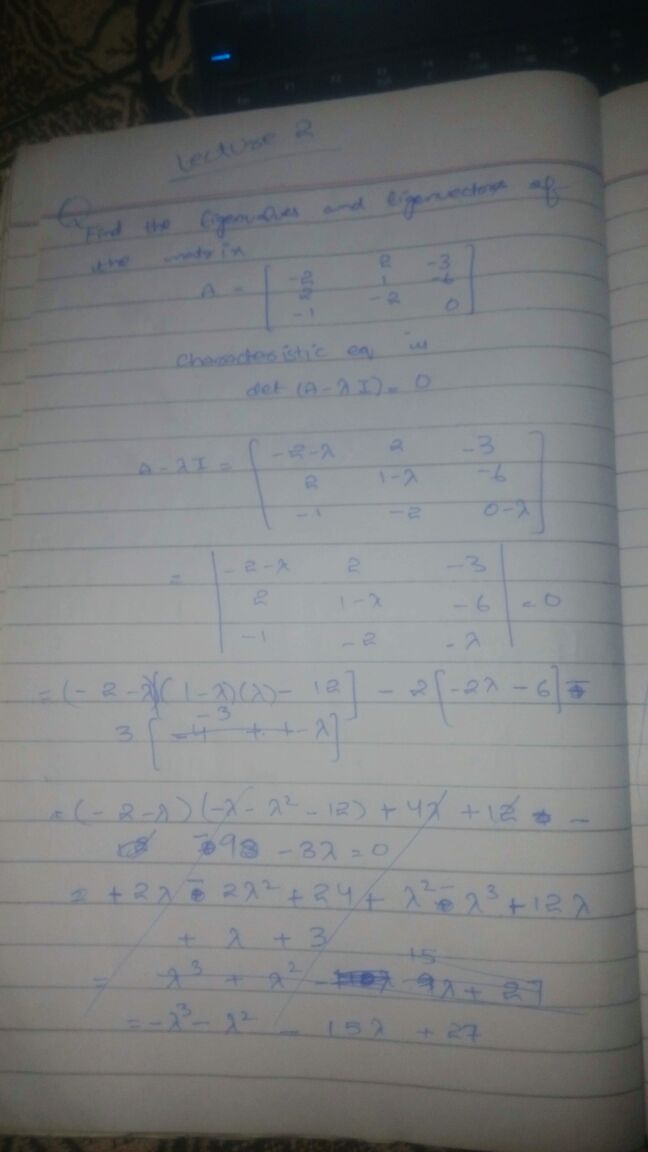 Lecture 2
Find the Eigenvalues and Eigenvectors of
the matrix
A = [ -2 2 -3
2 1 -6
-1 -2 0 ]
Characteristic eq is
det (A-λI) = 0
A-λI = [ -2-λ 2 -3
2 1-λ -6
-1 -2 0-λ ]
= | -2-λ 2 -3
2 1-λ -6 | = 0
-1 -2 -λ
= (-2-λ)(1-λ)(λ)-12] - 2[-2λ-6]
3[ -3 -λ]
= (-2-λ)(-λ-λ²-12) + 4λ + 12 -
9 -3λ = 0
= +2λ - 2λ² + 24 + λ² - λ³ + 12λ
+ λ + 3
= λ³ + λ² - 15 λ + 27
= -λ³ - λ² - 15λ + 27